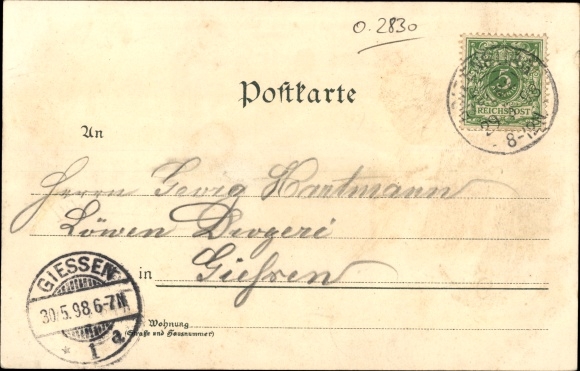 0.2830
5
REICHSPOST
29 5
8-12N
Postkarte
An
Herrn Georg Hartmann
Löwen Drogerie
in Gießen
GIESSEN
30/5.98.6-7N.
* 1 a
Wohnung
(Straße und Hausnummer)